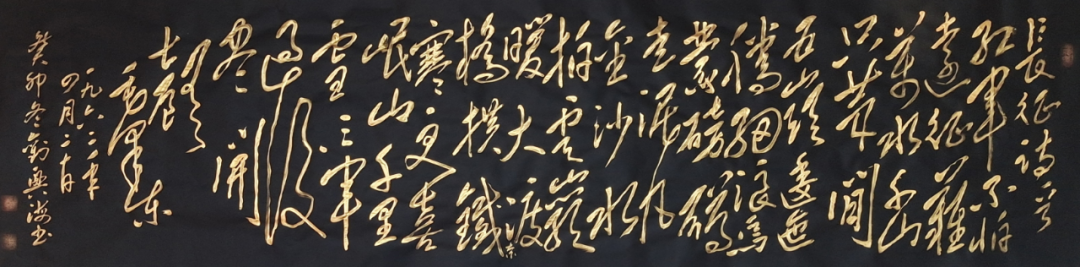 長征詩一首
紅軍不怕
遠征難
萬水千山
只等閒
五嶺逶迤
騰細浪烏
蒙磅礴
走泥丸
金沙水
拍雲崖
暖大渡
橋橫鐵索
寒更喜
岷山千里
雪三軍
過後
盡開
顏
七律
毛澤東
一九六二年
四月二十日
癸卯冬劉興海書